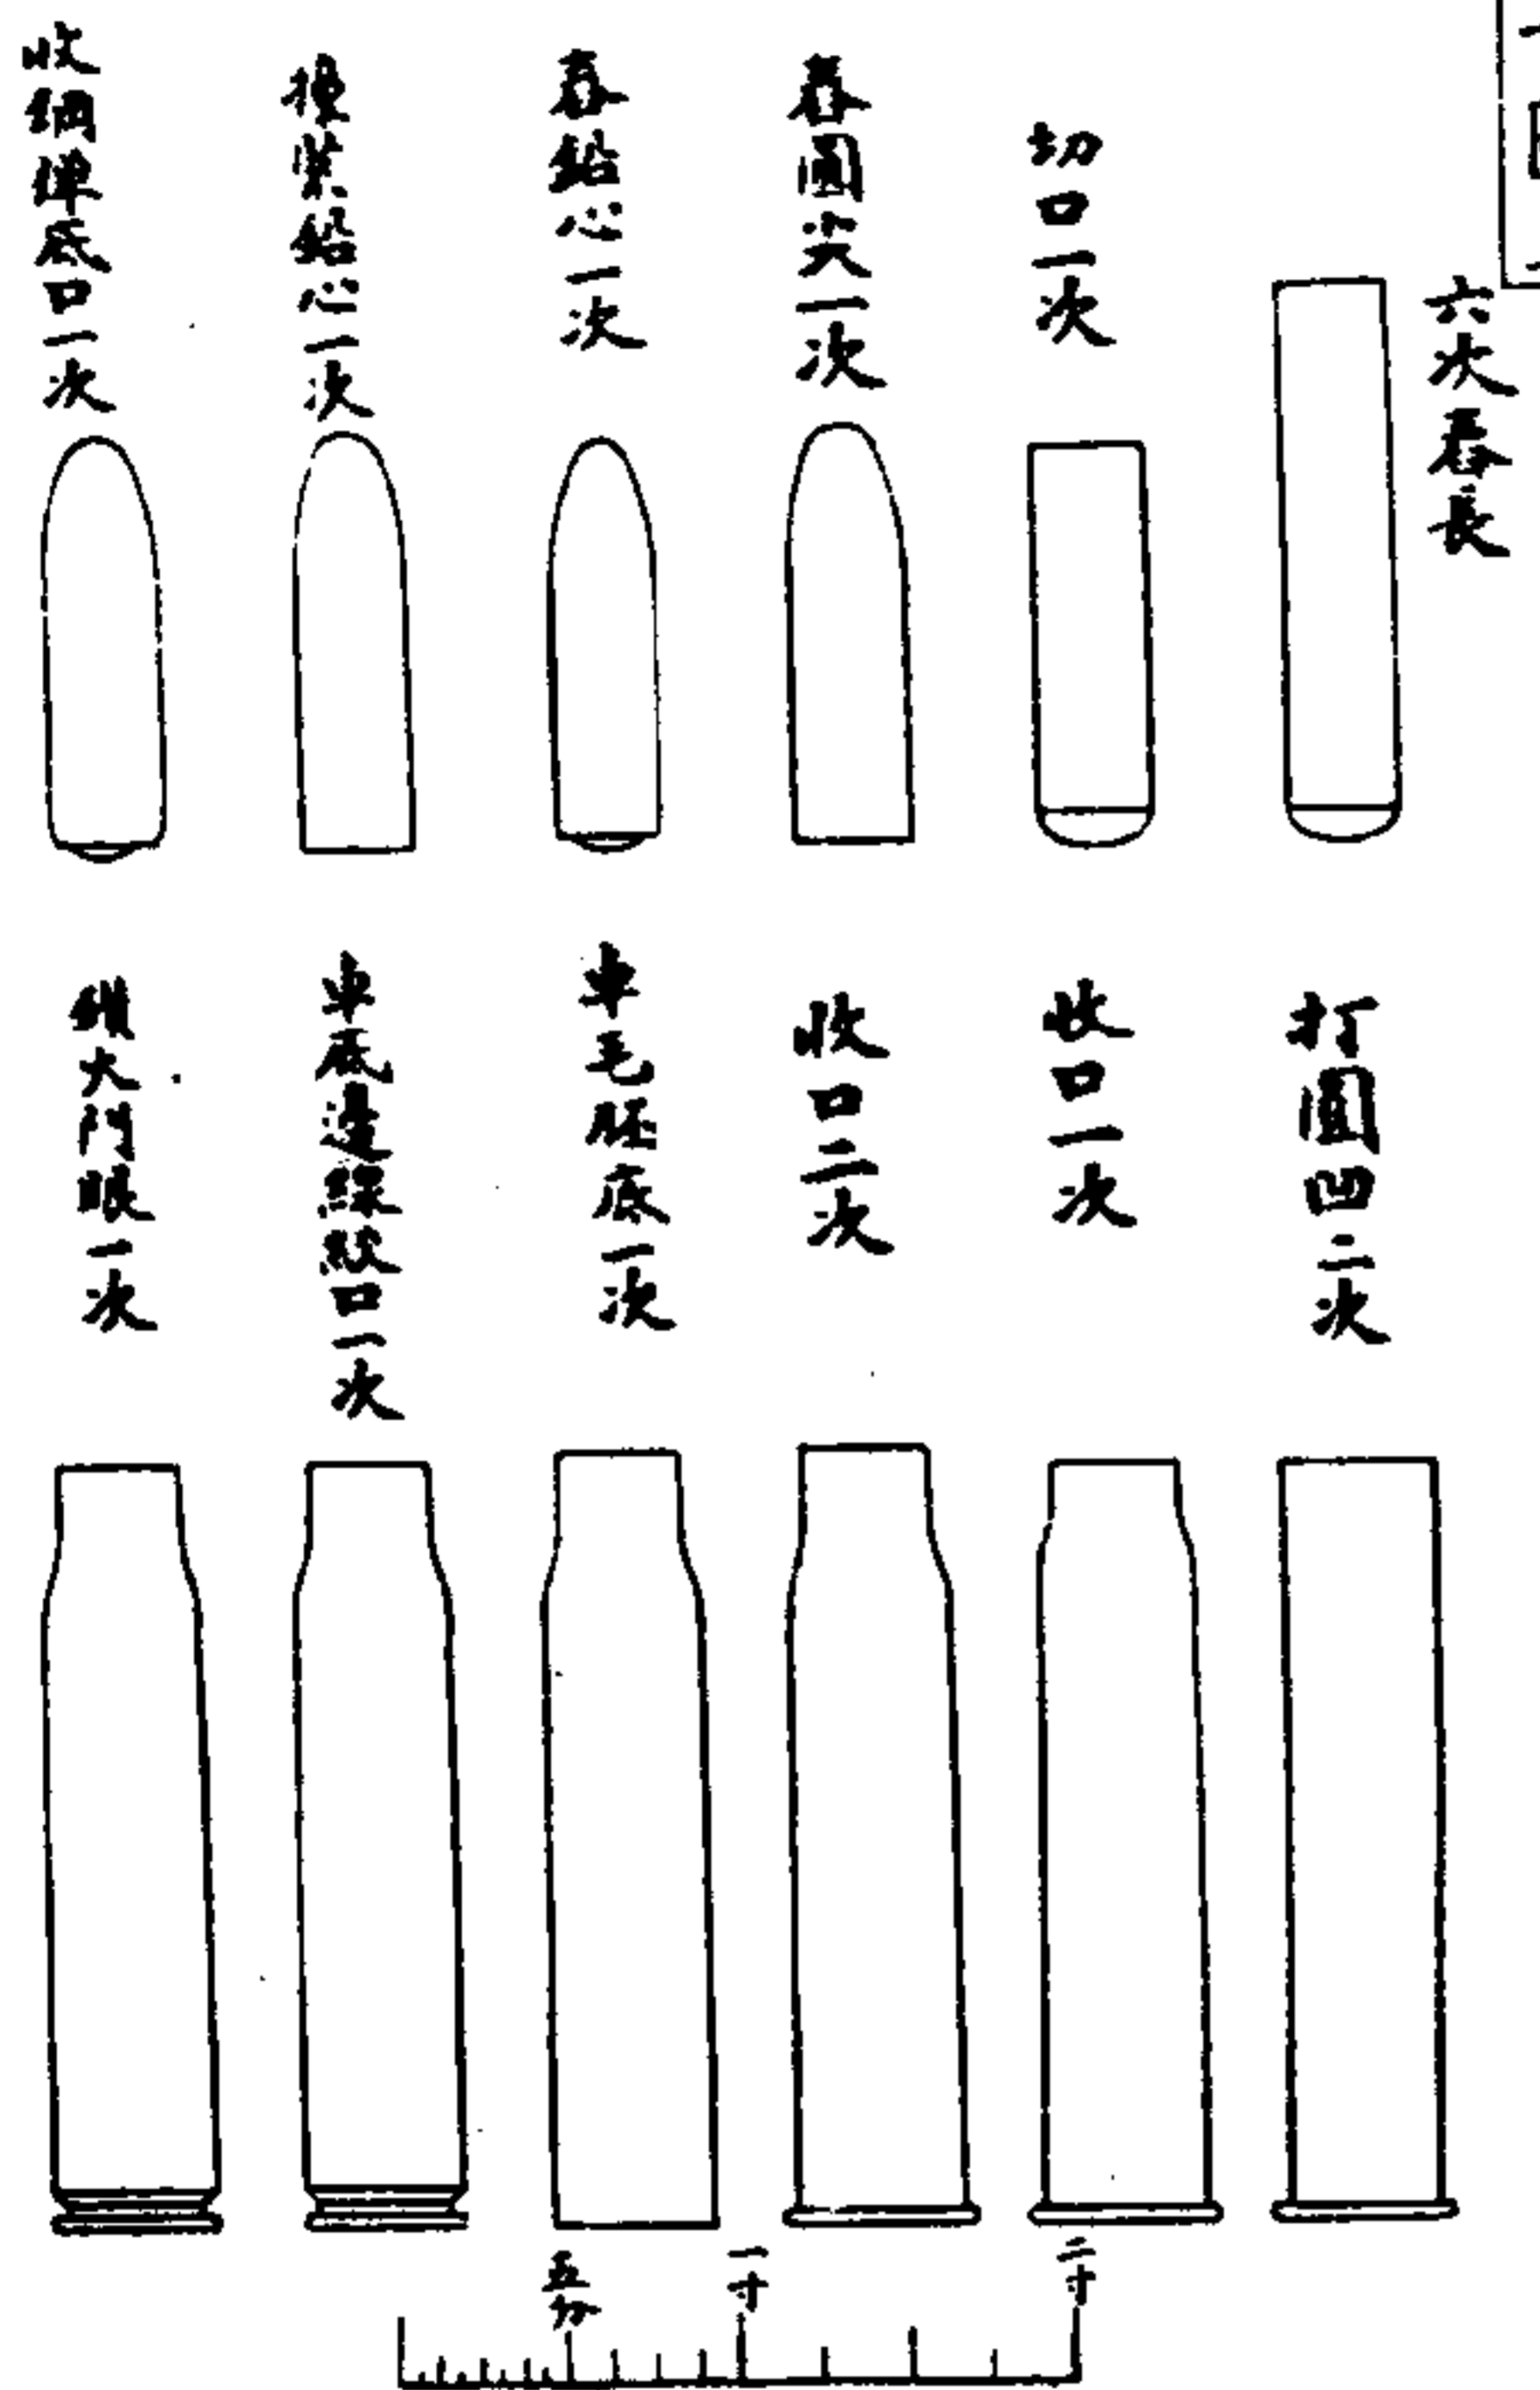 六次舂長
切口一次
舂圓尖一次
舂鉛心一次
裝鉛心一次
收鋼彈底口一次
打圓凹二次
收口一次
收口二次
車毛胚底一次
車底邊線股口一次
鑽火門眼一次
五分
一寸
二寸